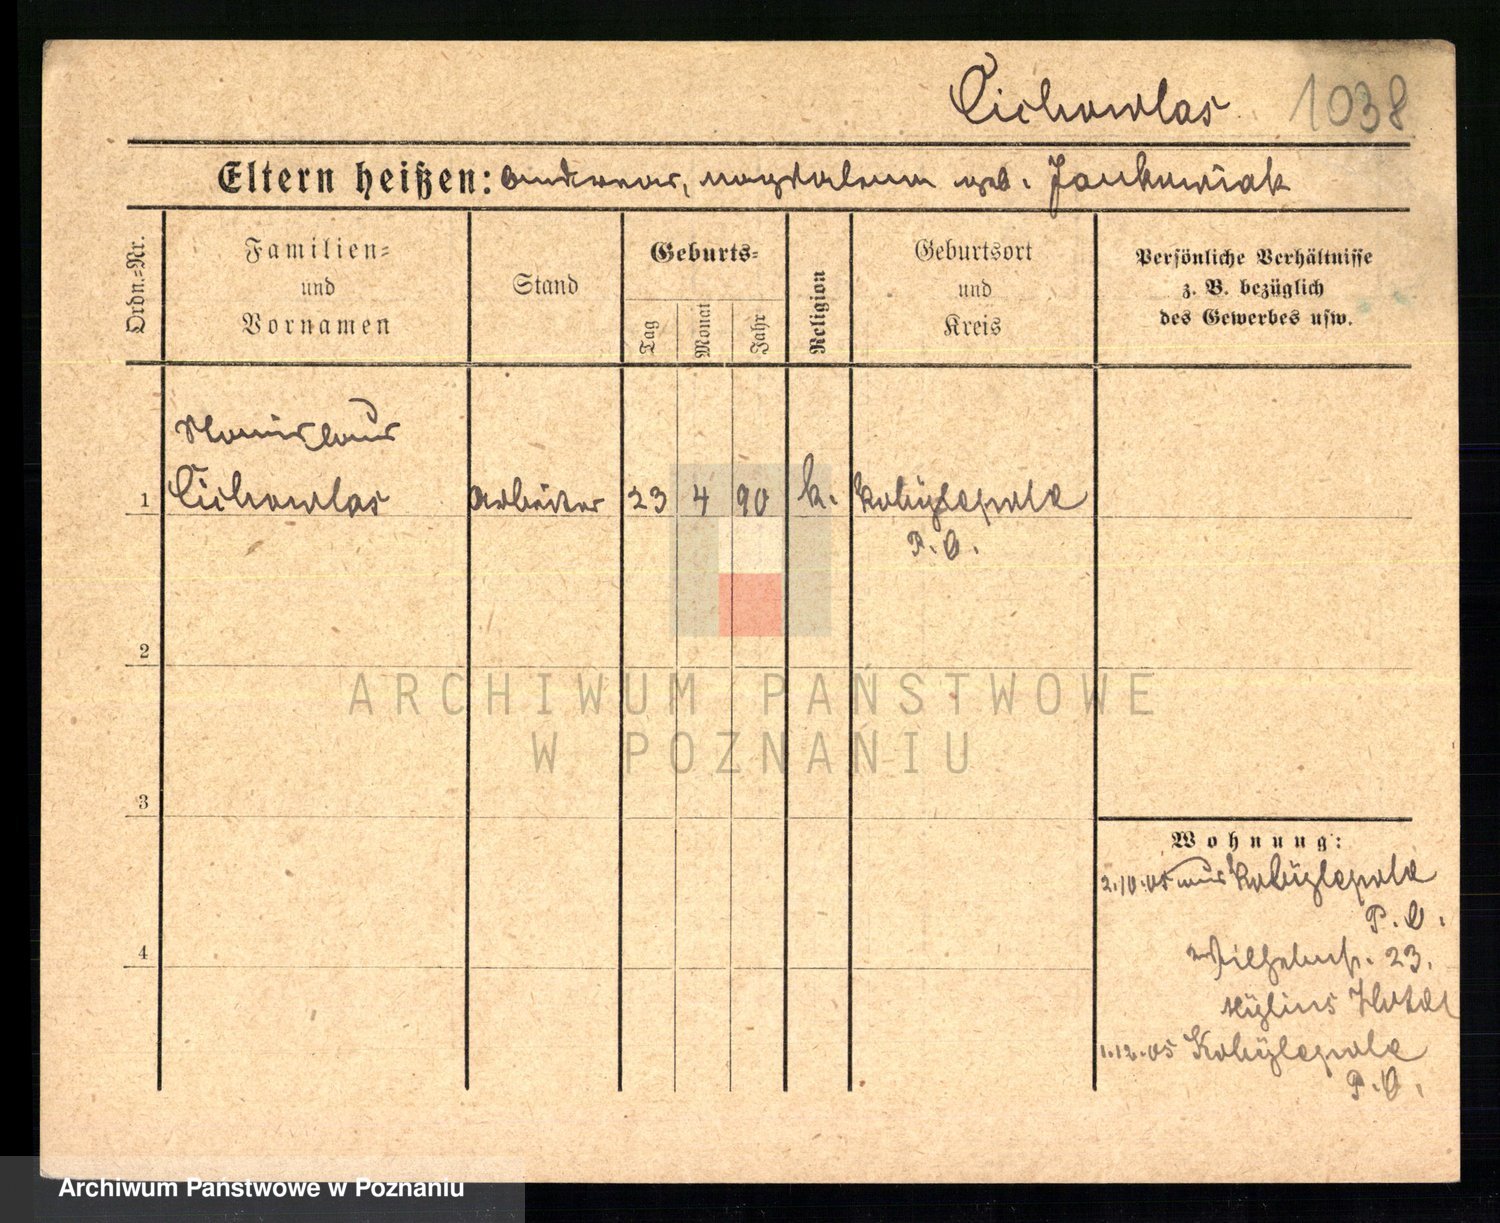 Cichowlas 1038
Eltern heißen: Andreas, Magdalena geb. Jankowiak
Ordn.-Nr.
Familien-
und
Vornamen
Stand
Geburts-
Tag
Monat
Jahr
Religion
Geburtsort
und
Kreis
Persönliche Verhältnisse
z. B. bezüglich
des Gewerbes usw.
Stanislaus
1 Cichowlas Arbeiter 23 4 90 k. Kobylepole
P. O.
2
ARCHIWUM PAŃSTWOWE
W POZNANIU
3
4
Wohnung:
2.10.05 aus Kobylepole
P. O.
Wilhelmstr. 23.
Mylius Hotel
1.12.05 Kobylepole
P. O.
Archiwum Państwowe w Poznaniu